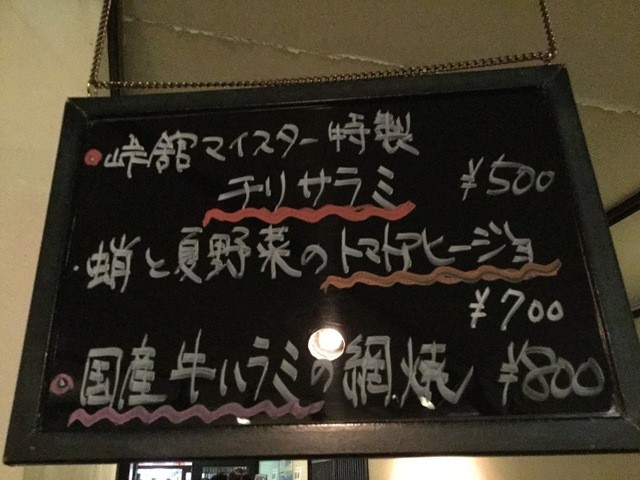 峠館マイスター特製
チリサラミ ¥500
・蛸と夏野菜のトマトアヒージョ
¥700
国産牛ハラミの網焼 ¥800